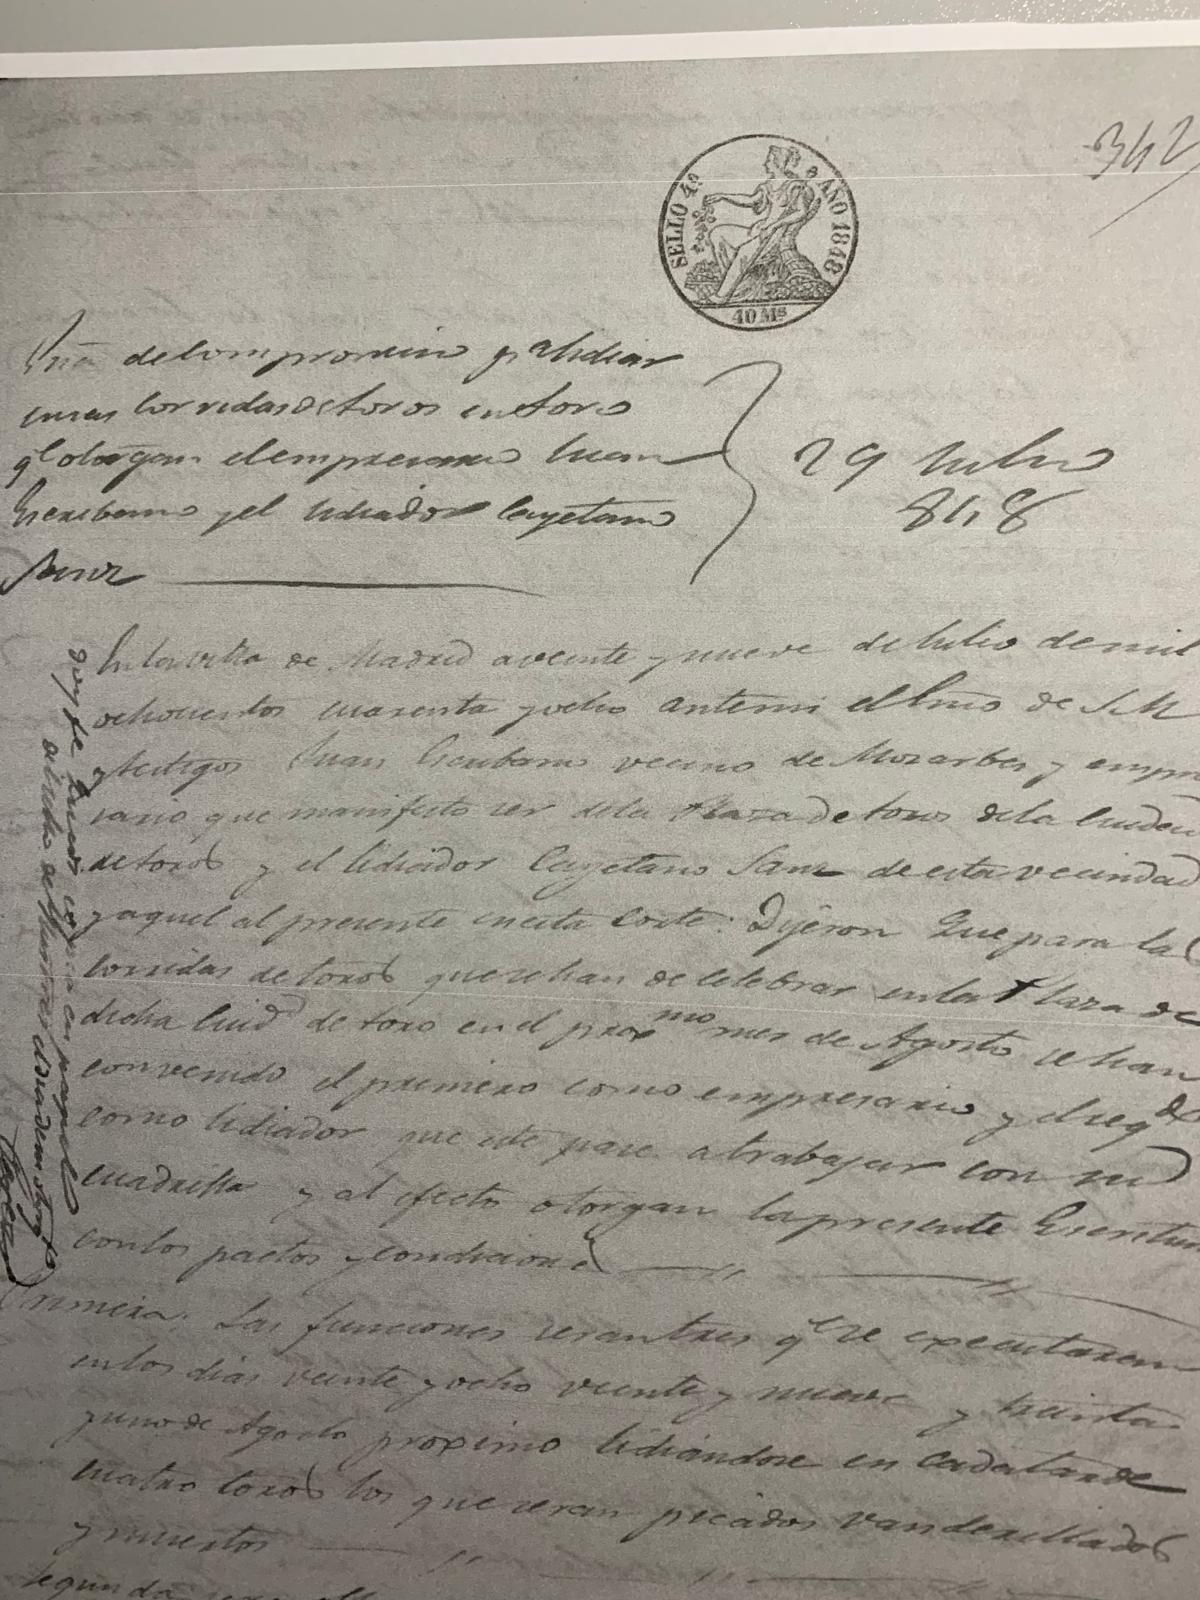 342
SELLO 4º
AÑO 1848
40 Ms
de compromiso pª lidiar
unas corridas de toros en toro
qe otorgan el empresario Juan
Escribano y el lidiador Cayetano
Sanz
29 Julio
848
En la villa de Madrid a veinte y nueve de Julio de mil
ochocientos cuarenta y ocho ante mi el Esno de S M
y testigos Juan Escribano vecino de Morarbes y empre
sario que manifesto ser de la Plaza de toros de la Ciudad
de toro y el lidiador Cayetano Sanz de esta vecindad
y aquel al presente en esta Corte: Dijeron Que para las
corridas de toros que se han de celebrar en la Plaza de
dicha Ciudd de toro en el proxmo mes de Agosto se han
convenido el primero como empresario y el segdo
como lidiador que este pase a trabajar con su
cuadrilla y al efecto otorgan la presente Escritura
con los pactos y condiciones
Primera. Las funciones seran tres qe se executaran
en los dias veinte y ocho veinte y nueve y treinta
y uno de Agosto proximo lidiandose en cada tarde
cuatro toros los que seran picados vanderillados
y muertos
Segunda
doy fe di copia en papel